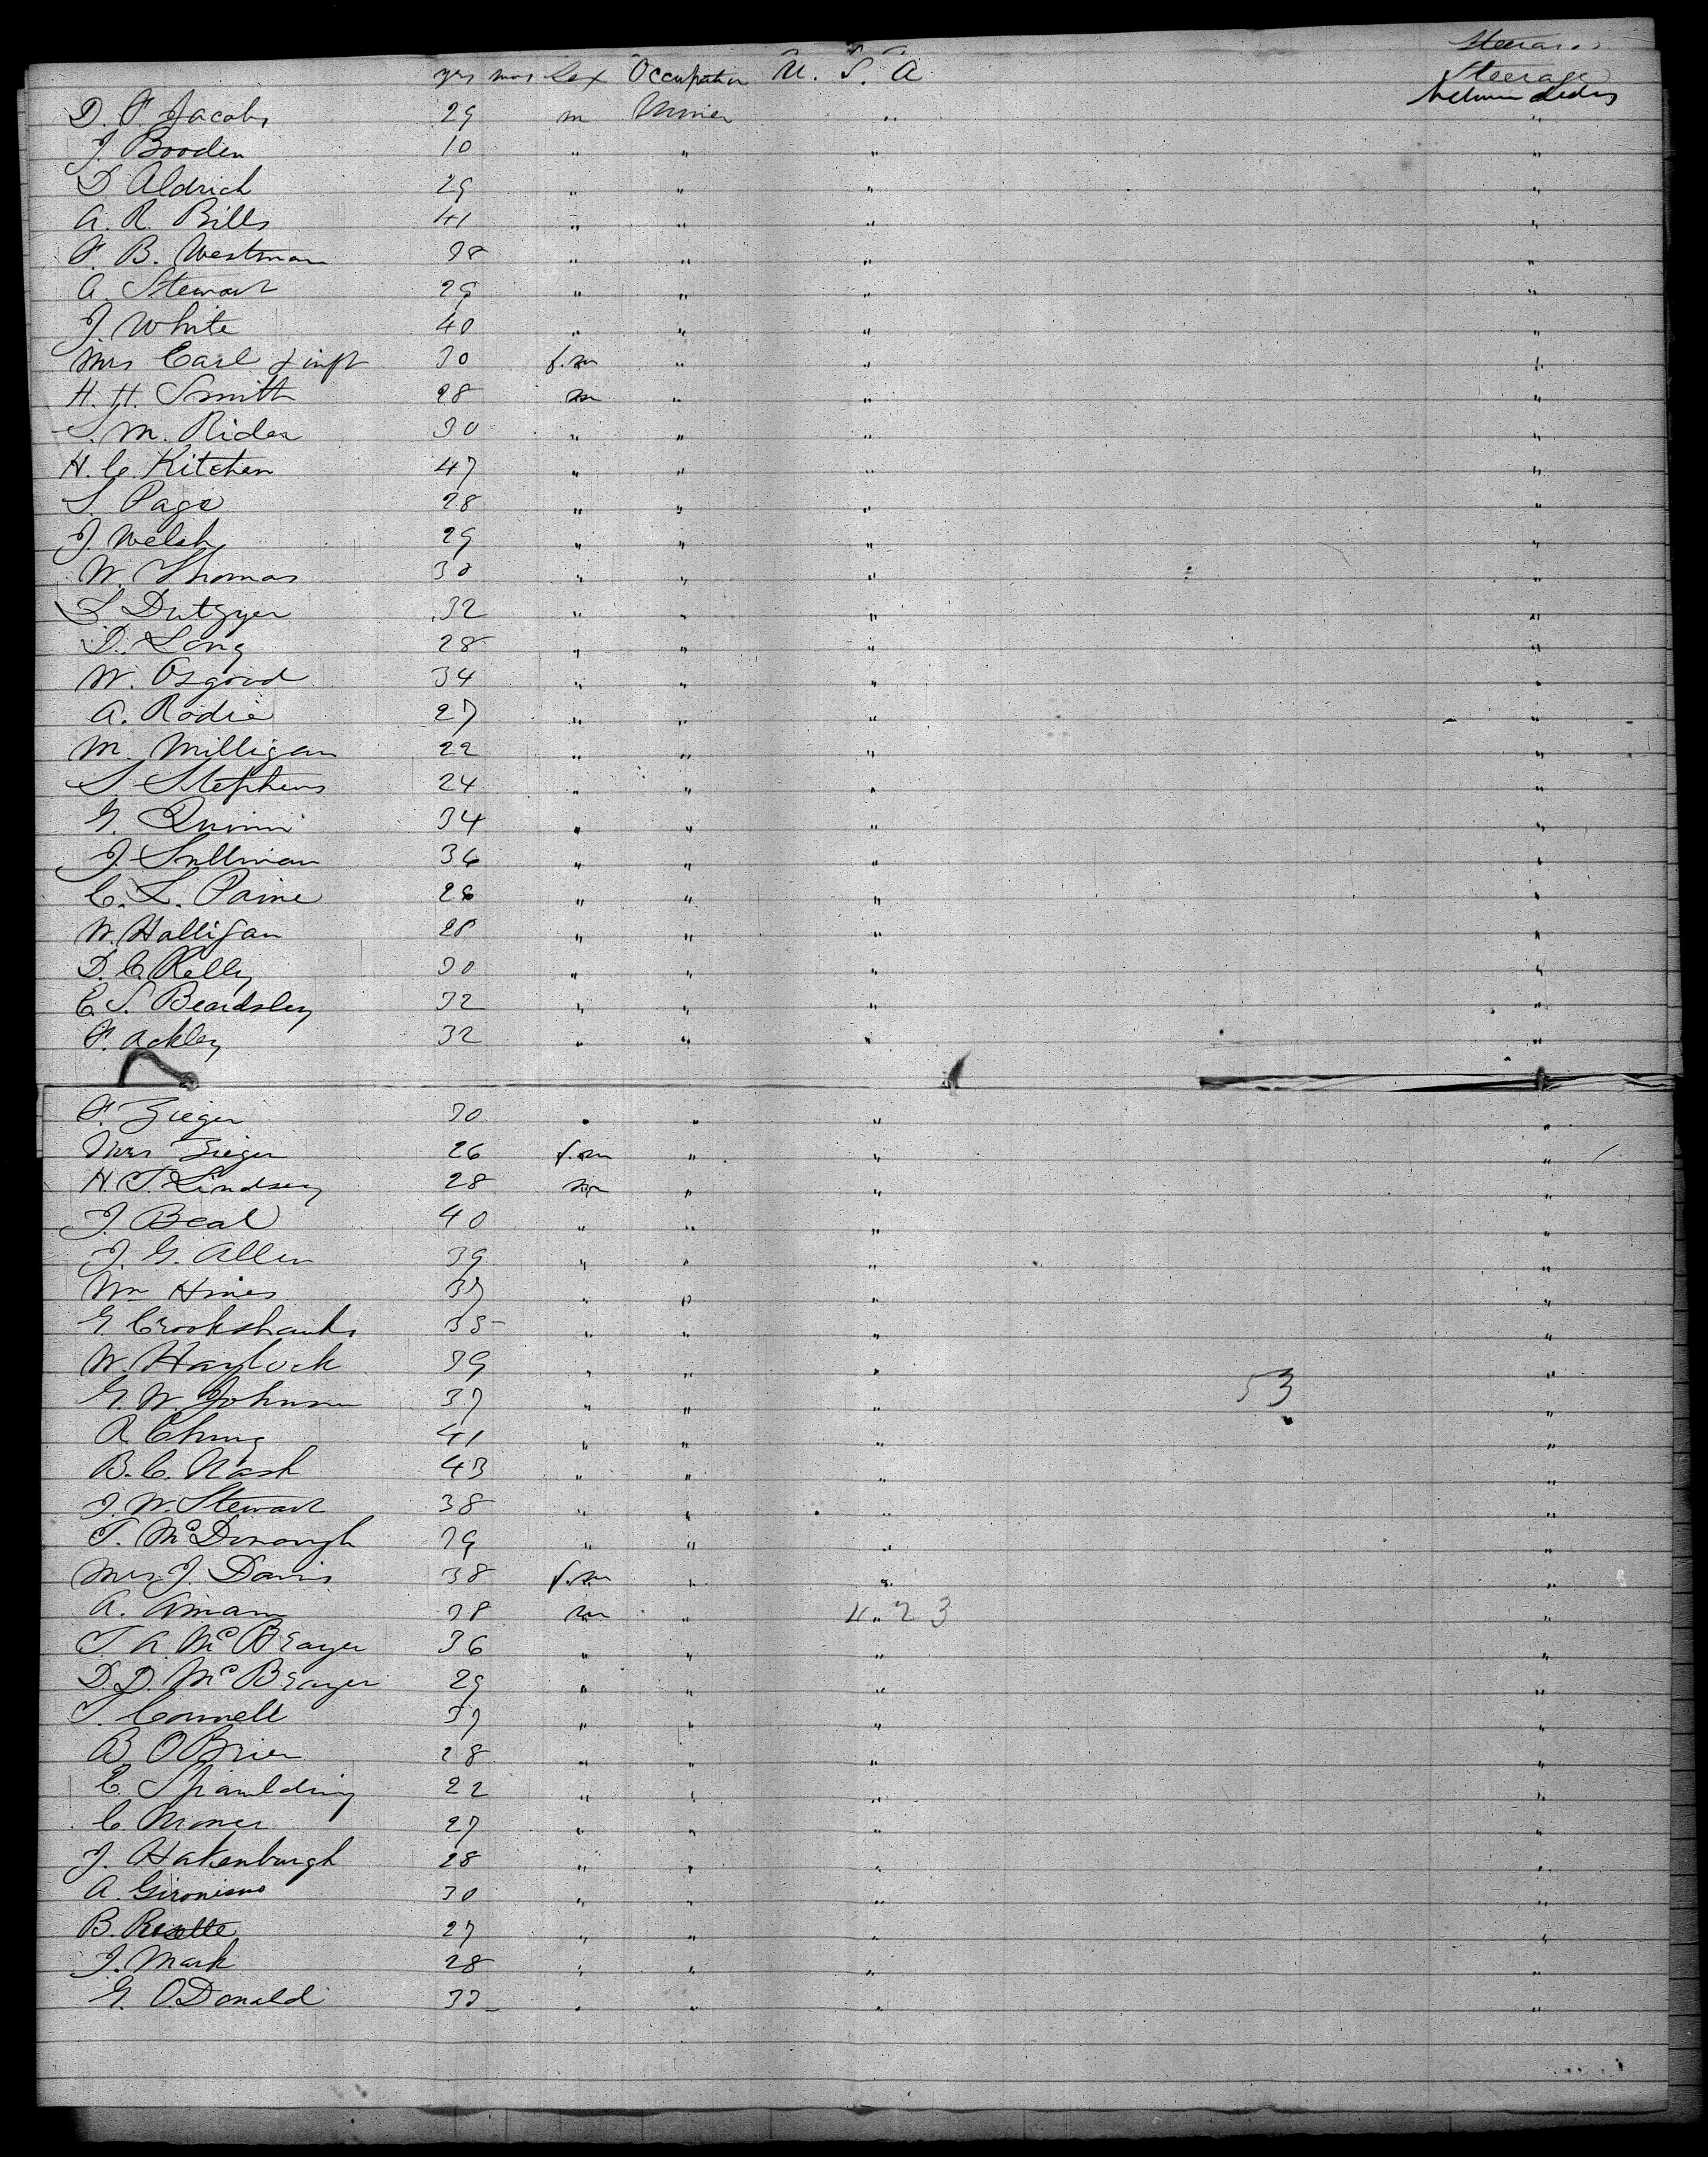 Steerage
yrs mos Sex Occupation U. S. A Steerage
between decks
D. F. Jacobs 29 m Miner " "
J. Booden 10 " " " "
D Aldrich 29 " " " "
A. R. Bills 41 " " " "
F. B. Westman 38 " " " "
A. Stewart 29 " " " "
J White 40 " " " "
Mrs Carl & inft 30 f.m " " "
H. H. Smith 28 m " " "
S. M. Rider 30 " " " "
H. C. Kitchen 47 " " " "
S. Page 28 " " " "
J. Welsh 29 " " " "
W. Thomas 30 " " " "
L. Dutzyer 32 " " " "
D. Long 28 " " " "
W. Osgood 34 " " " "
A. Rodie 27 " " " "
M. Milligan 22 " " " "
S. Stephens 24 " " " "
G. Quinn 34 " " " "
J. Sullivan 36 " " " "
C. L. Paine 26 " " " "
W. Halligan 28 " " " "
D. C. Kelly 30 " " " "
E. S. Beardsley 32 " " " "
F. Ackley 32 " " " "
F. Zieger 30 " " " "
Mrs Zieger 26 f.m " " "
H. T. Lindsey 28 m " " "
J. Beal 40 " " " "
J. G. Allen 39 " " " "
Wm Hines 37 " " " "
G Crookshanks 35 " " " "
W. Haylock 39 " " " "
G. W. Johnson 37 " " 53 " "
A. Chung 41 " " " "
B. C. Nash 43 " " " "
J. W. Stewart 38 " " " "
T. McDonough 39 " " " "
Mrs J. Davis 38 f.m " " "
A. Aman 38 m " 423 " "
T. A. McBrayer 36 " " " "
D. D. McBrayer 29 " " " "
T. Connell 37 " " " "
B. OBrien 28 " " " "
E. Spaulding 22 " " " "
C. 27 " " " "
J. Hakenburgh 28 " " " "
A. Gironimo 30 " " " "
B. Rosette 27 " " " "
J. Mark 28 " " " "
G. O.Donald 32 " " " "